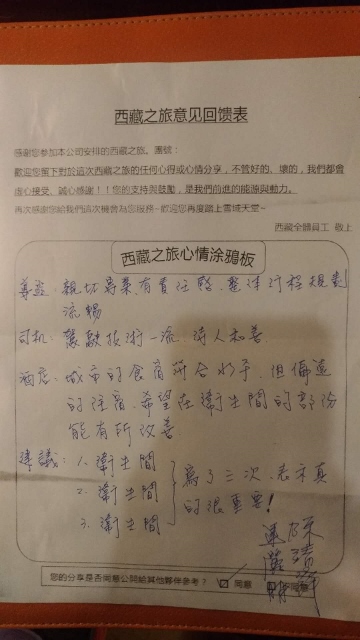 西藏之旅意见回馈表
感謝您參加本公司安排的西藏之旅。團號：
歡迎您留下對於這次西藏之旅的任何心得或心情分享，不管好的、壞的，我們都會
虛心接受、誠心感謝！！您的支持與鼓勵，是我們前進的能源與動力。
再次感謝您給我們這次機會為您服務~歡迎您再度踏上雪域天堂~
西藏全體員工 敬上
西藏之旅心情塗鴉板
導遊：親切專業有責任感，整体行程規劃
流暢
司机：駕駛技術一流，待人和善
酒店：城市的食宿符合水平，但偏遠
的住宿，希望在衛生間的部份
能有所改善
建議：1. 衛生間
2. 衛生間
3. 衛生間
寫了三次，表示真
的很重要！
您的分享是否同意公開給其他夥伴參考？ ☑ 同意